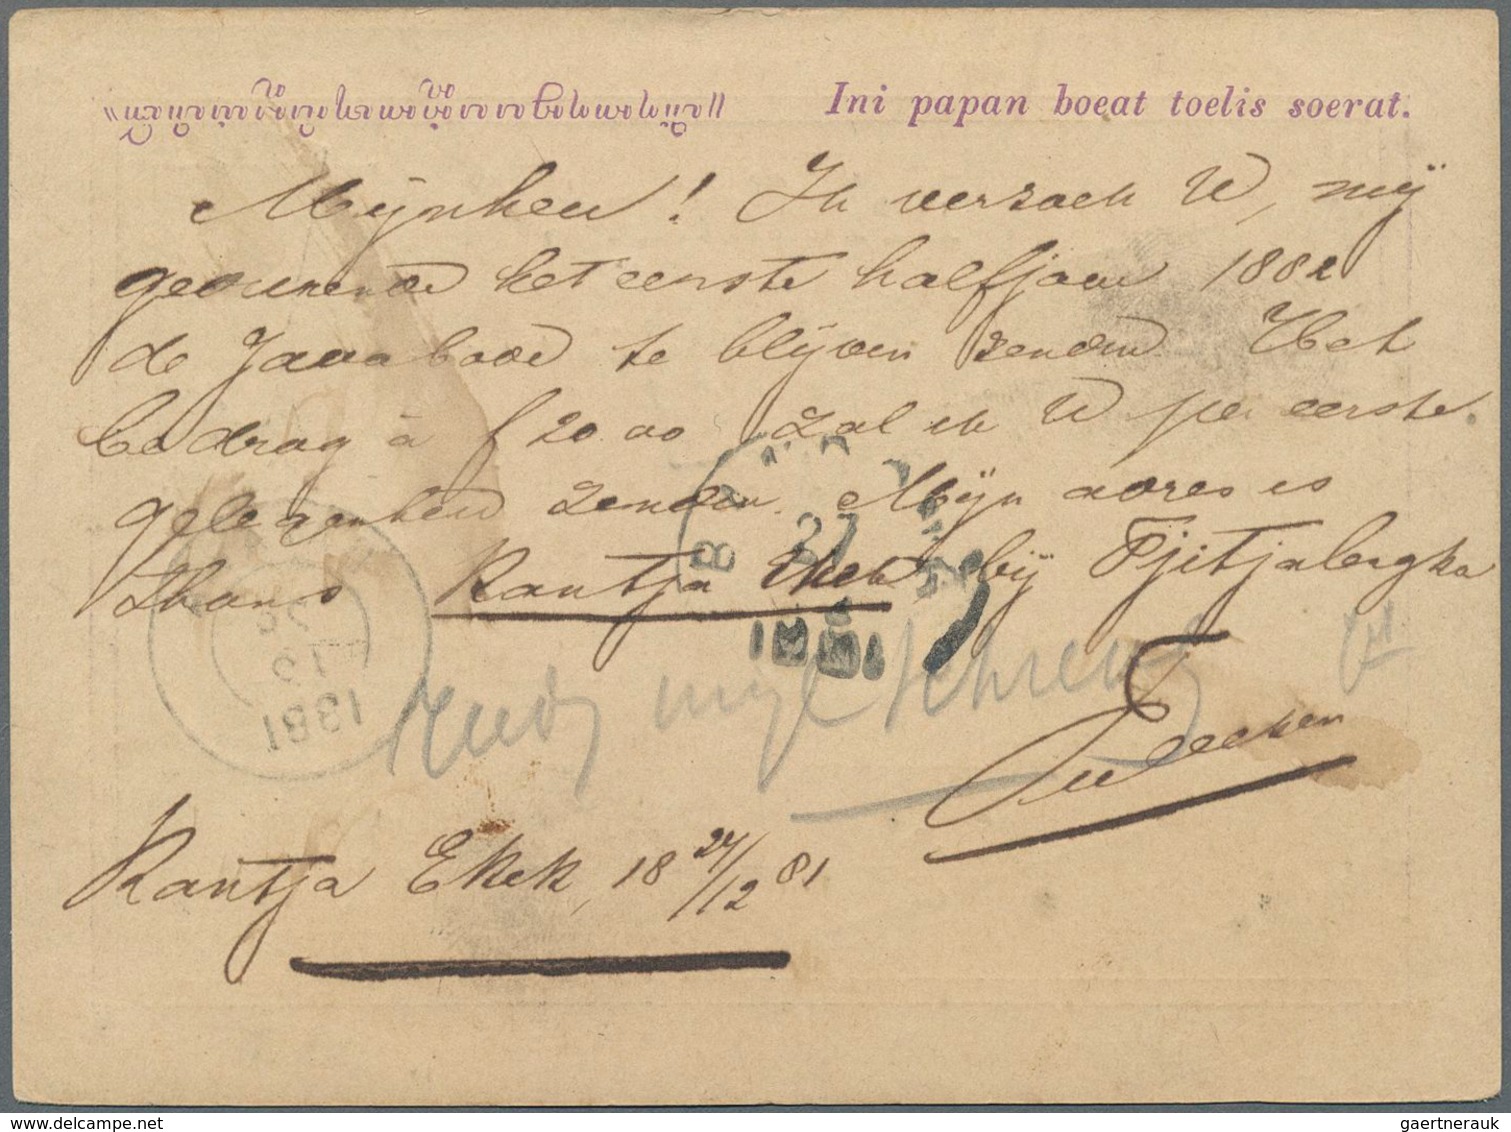 Ini papan boeat toelis soerat.
Mijnheer! Ik verzoek U, mij
gedurende het eerste halfjaar 1882
de Javabode te blijven zenden. Het
bedrag à f 20.00 zal ik U per eerste
gelegenheid zenden. Mijn adres is
thans Rantja Ekek, bij Tjitjalengka
1881
Rantja Ekek, 18 24/12 81
gaertnerauk